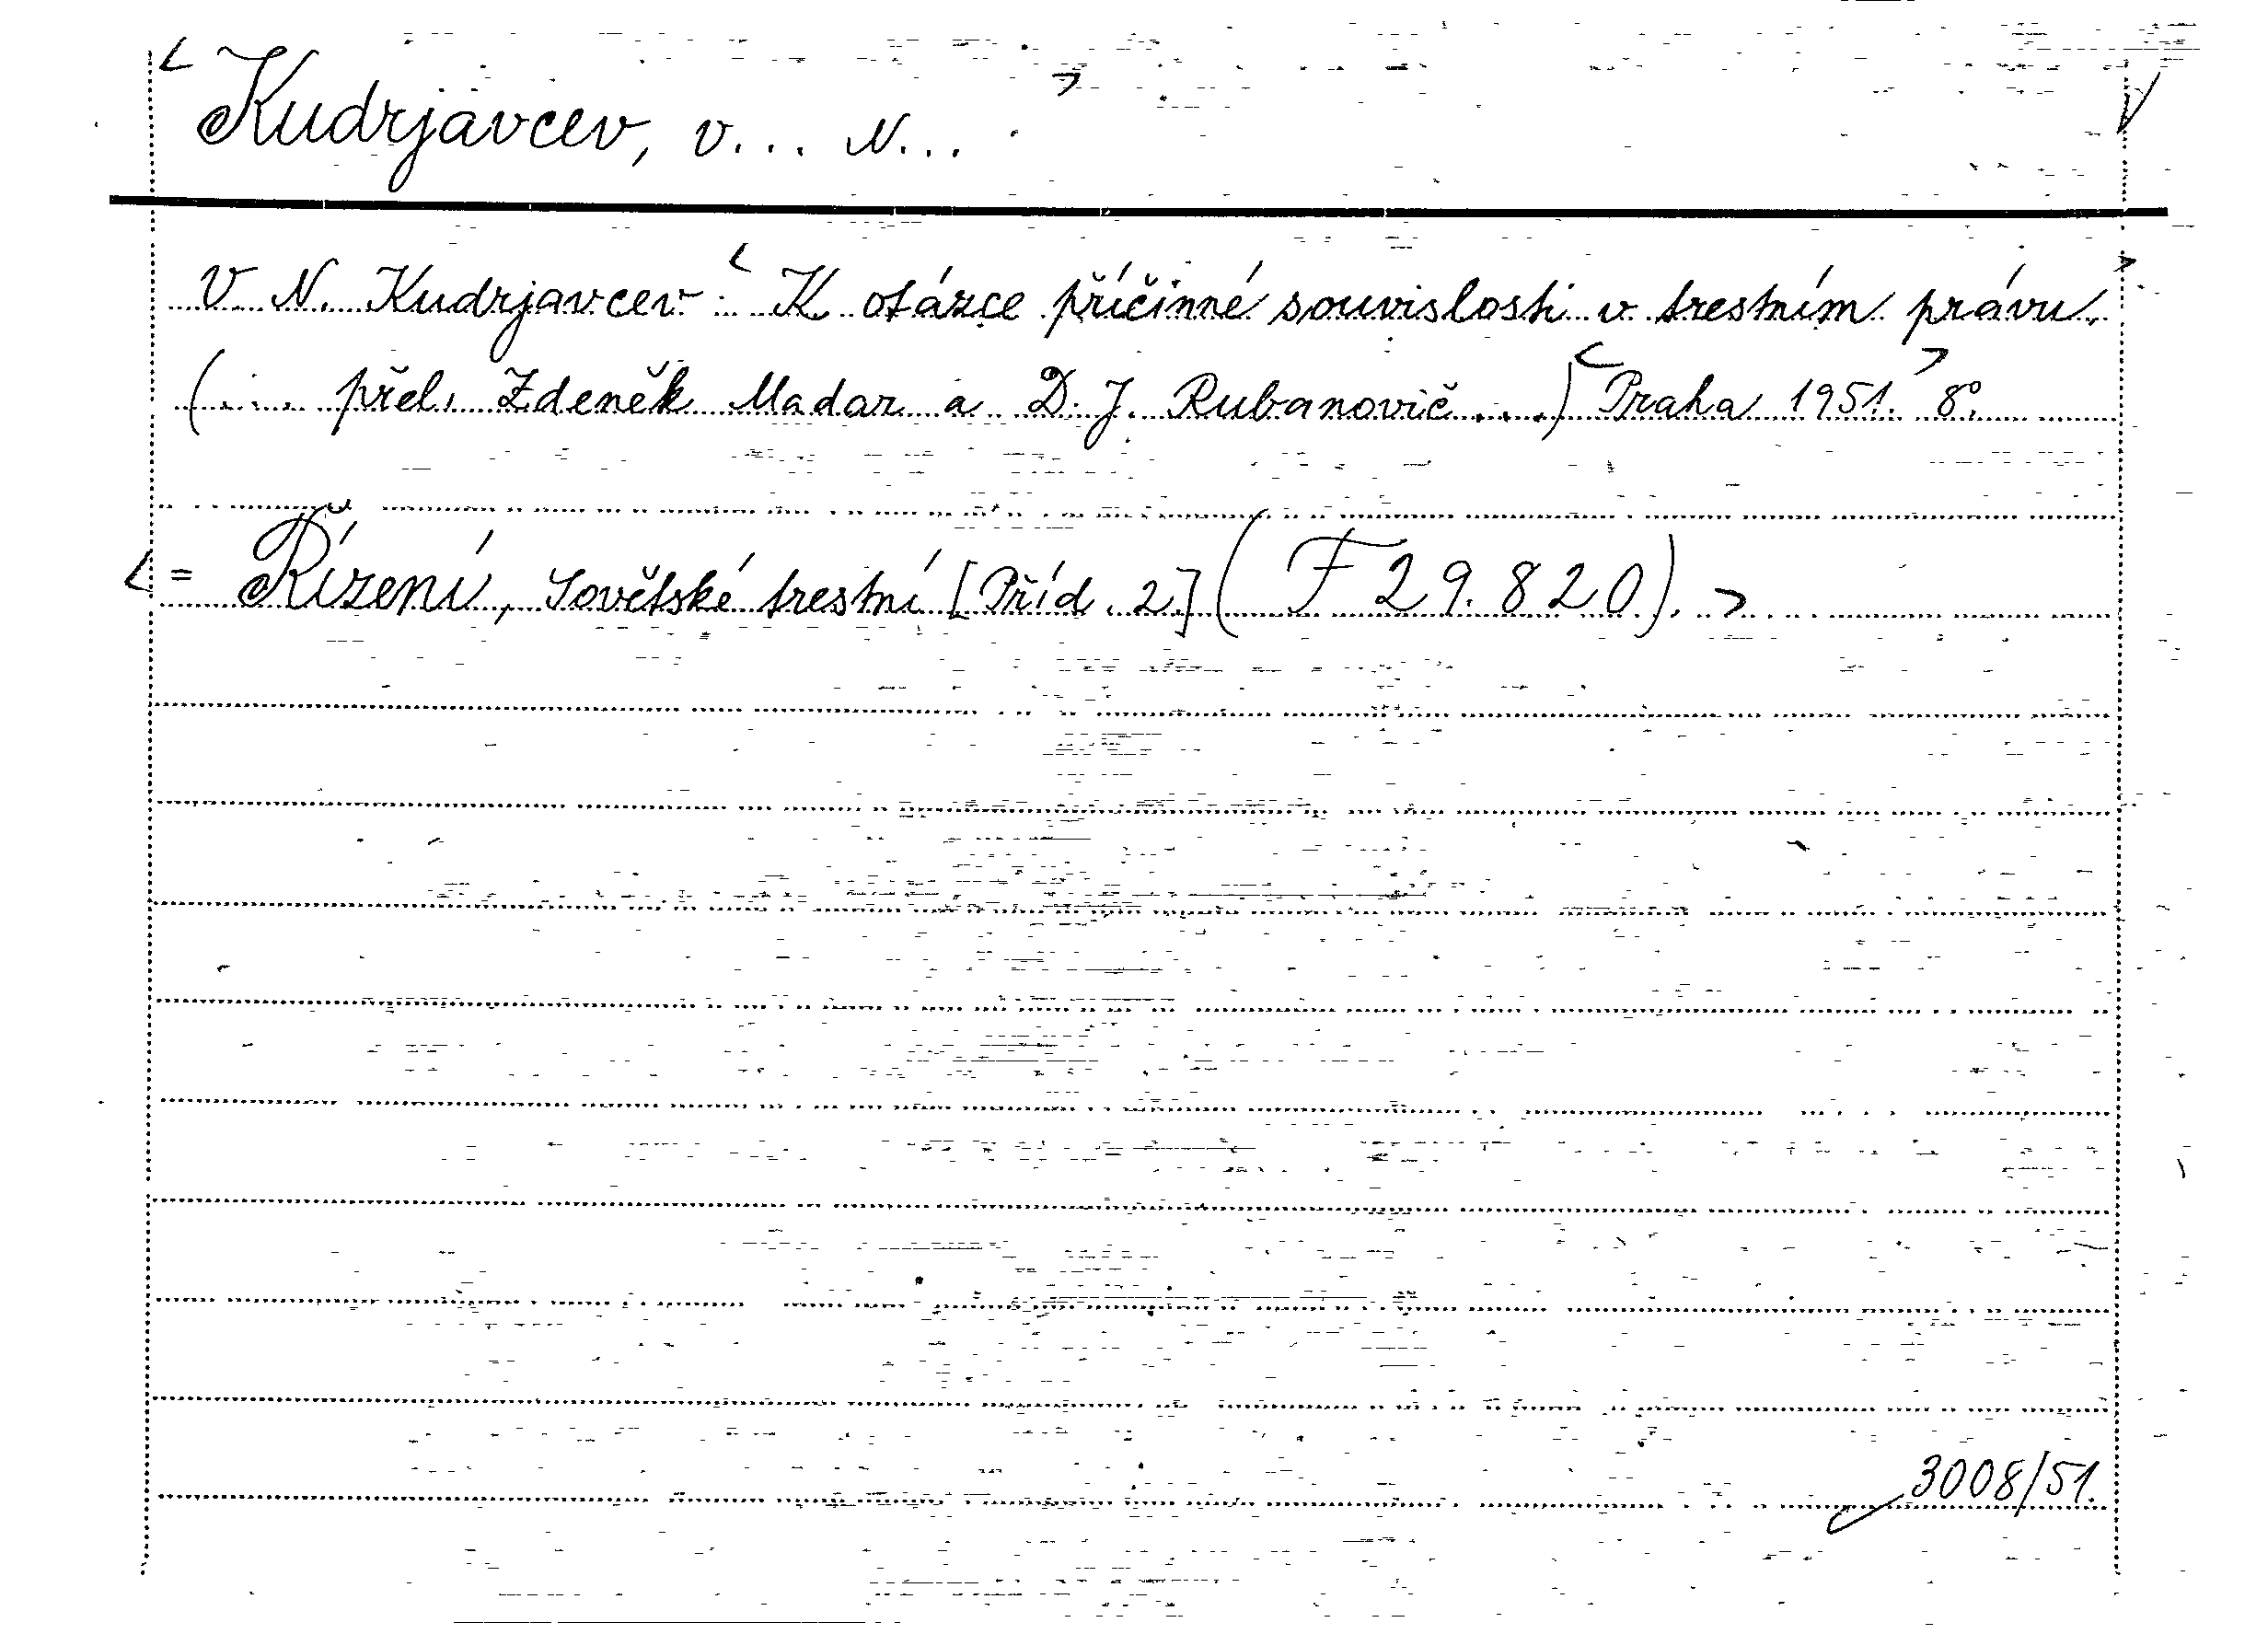 < Kudrjavcev, V... N... >
V. N. Kudrjavcev: < K otázce příčinné souvislosti v trestním právu. >
(... přel. Zdeněk Madar a D. J. Rubanovič...) < Praha 1951. > 8°.
< = Řízení, Sovětské trestní [Příd. 2] (F 29.820). >
3008/51.